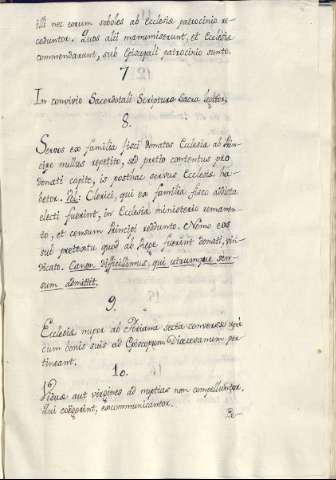 illi nec eorum soboles ab Ecclesia patrocinio re-
cedunto. Quos alii manumiserunt, et Ecclesia
commendarunt, sub Episcopali patrocinio sunto.
7
In convivio Sacerdotali Scriptura Sacra legitor.
8.
Servos ex familia fisci donatos Ecclesia ab Prin-
cipe nullus repetito, sed pretio contentus pro
donati capite, is posthac servus Ecclesia ha-
betor. Vel: Clerici, qui ex familia fisco addicta
electi fuerint, in Ecclesia ministerio remanen-
to, et censum Principi reddunto. Nemo eos
sub pretextu quod ab Rege fuerint donati, vin-
dicato. Canon difficillimus, qui utrumque sen-
sum admittit.
9.
Ecclesia nuper ab Ariana secta conversa
cum donis suis ad Episcopum Diœcesanum per-
tineant.
10.
Vidua aut virgines ad nuptias non compelluntor.
Qui coëgerint, excommunicantor.